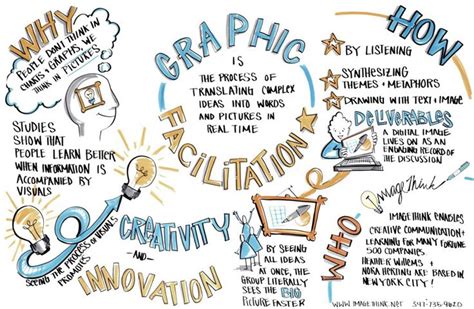 WHY
PEOPLE DON'T THINK IN
CHARTS + GRAPHS, WE
THINK IN PICTURES
STUDIES
SHOW THAT
PEOPLE LEARN BETTER
WHEN INFORMATION IS
ACCOMPANIED BY
VISUALS
SEEING THE PROCESS
OF VISUALS
GRAPHIC
FACILITATION
IS
THE PROCESS OF
TRANSLATING COMPLEX
IDEAS INTO WORDS
AND PICTURES IN
REAL TIME
CREATIVITY
AND
INNOVATION
BY SEEING
ALL IDEAS
AT ONCE, THE
GROUP LITERALLY
SEES THE BIG
PICTURE FASTER
HOW
BY LISTENING
SYNTHESIZING
THEMES + METAPHORS
DRAWING WITH TEXT + IMAGE
DELIVERABLES
A DIGITAL IMAGE
LIVES ON AS AN
ENDURING RECORD OF
THE DISCUSSION
WHO
ImageThink
IMAGE THINK ENABLES
CREATIVE COMMUNICATION +
LEARNING FOR MANY FORTUNE
500 COMPANIES
HEATHER WILLEMS +
NORA HERTING ARE BASED IN
NEW YORK CITY!
WWW.IMAGETHINK.NET